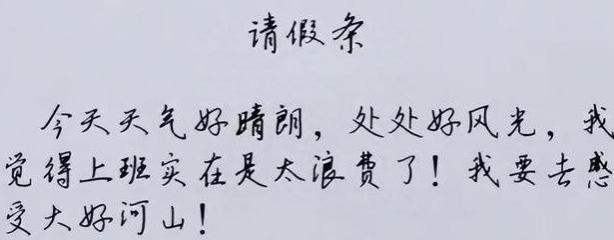 请假条
今天天气好晴朗，处处好风光，我
觉得上班实在是太浪费了！我要去感
受大好河山！